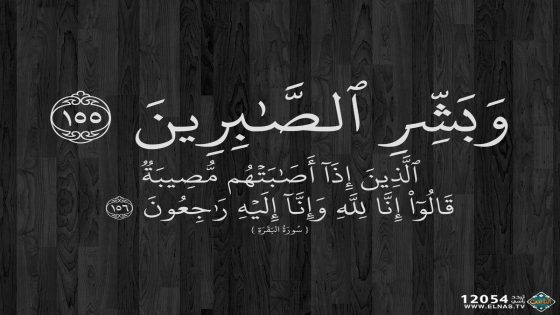 وَبَشِّرِ ٱلصَّـٰبِرِينَ ١٥٥
ٱلَّذِينَ إِذَآ أَصَـٰبَتْهُم مُّصِيبَةٌ
قَالُوٓا۟ إِنَّا لِلَّهِ وَإِنَّآ إِلَيْهِ رَٰجِعُونَ ١٥٦
( سُورَةُ البَقَرَةِ )
12054
WWW.ELNAS.TV
الناس